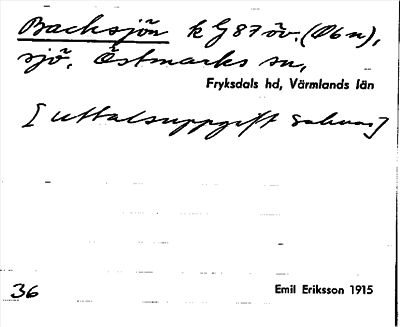 Backsjön k G87 öv. (Ø6n),
sjö, Östmarks sn,
Fryksdals hd, Värmlands län
[uttalsuppgift saknas]
36
Emil Eriksson 1915